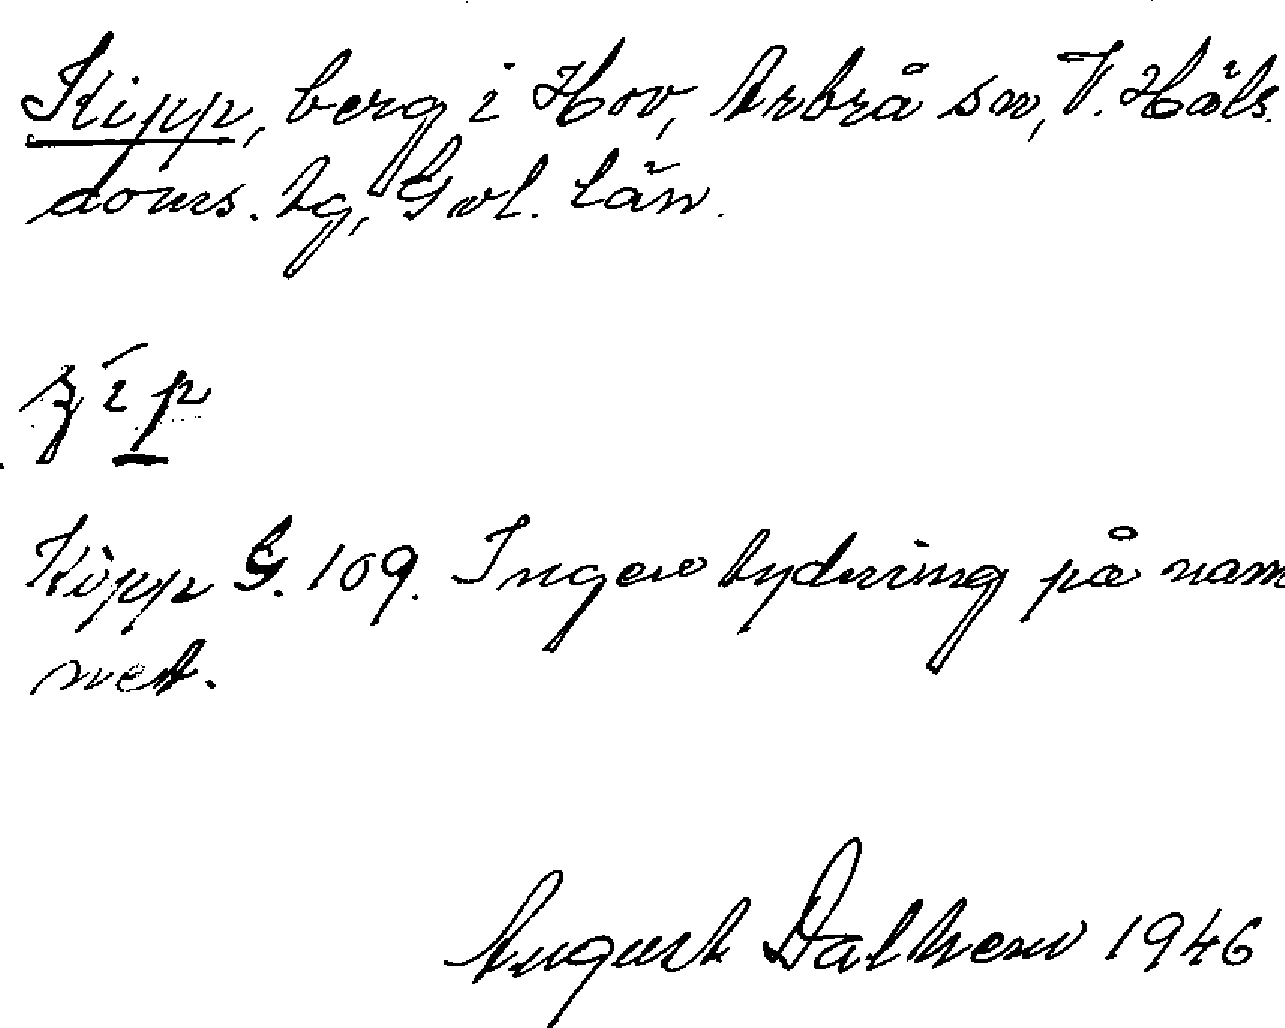 Kipp, berg i Hov, Arbrå sn, V. Häls.
doms. tg, Gvl. län.
Kipp G. 109. Ingen tydning på nam
net.
August Dalhem 1946